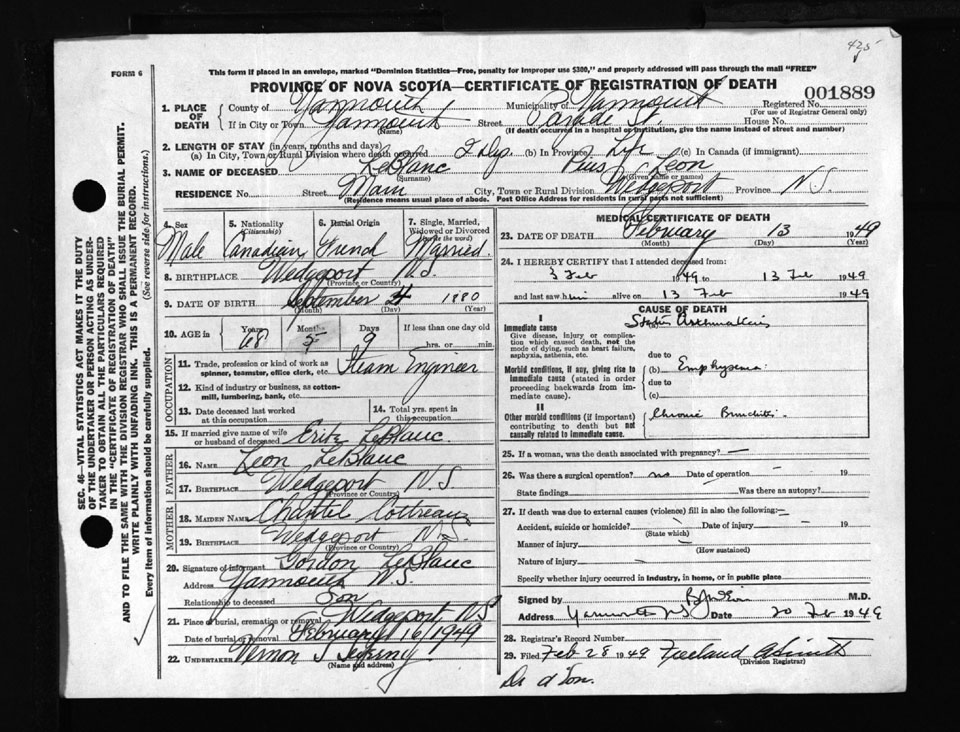 425
FORM 6
This form if placed in an envelope, marked "Dominion Statistics—Free, penalty for improper use $300," and properly addressed will pass through the mail "FREE"
PROVINCE OF NOVA SCOTIA—CERTIFICATE OF REGISTRATION OF DEATH
001889
1. PLACE OF DEATH
County of Yarmouth Municipality of Yarmouth Registered No.
(For use of Registrar General only)
If in City or Town Yarmouth Street Parade St. House No.
(Name) (If death occurred in a hospital or institution, give the name instead of street and number)
2. LENGTH OF STAY (in years, months and days)
(a) In City, Town or Rural Division where death occurred 2 Dys. (b) In Province Life (c) In Canada (if immigrant)
3. NAME OF DECEASED LeBlanc Pius Leon
(Surname) (Given name or names)
RESIDENCE No. Street Main City, Town or Rural Division Wedgeport Province N.S.
(Residence means usual place of abode. Post Office Address for residents in rural parts not sufficient)
4. Sex 5. Nationality (Citizenship) 6. Racial Origin 7. Single, Married, Widowed or Divorced (write the word)
Male Canadian French Married.
8. BIRTHPLACE Wedgeport N.S.
(Province or Country)
9. DATE OF BIRTH September 4 1880
(Month) (Day) (Year)
10. AGE in Years Months Days If less than one day old
68 5 9 hrs. or min.
OCCUPATION
11. Trade, profession or kind of work as spinner, teamster, office clerk, etc. Steam Engineer
12. Kind of industry or business, as cotton-mill, lumbering, bank, etc.
13. Date deceased last worked at this occupation
14. Total yrs. spent in this occupation
15. If married give name of wife or husband of deceased LeBlanc.
FATHER
16. NAME Leon LeBlanc
17. BIRTHPLACE Wedgeport N.S.
(Province or Country)
MOTHER
18. MAIDEN NAME Cottreau
19. BIRTHPLACE Wedgeport N.S.
(Province or Country)
20. Signature of informant Gordon LeBlanc
Address Yarmouth N.S.
Relationship to deceased Son
21. Place of burial, cremation or removal Wedgeport, N.S
Date of burial or removal February 16/1949
22. UNDERTAKER Vernon
(Name and address)
MEDICAL CERTIFICATE OF DEATH
23. DATE OF DEATH February 13 1949
(Month) (Day) (Year)
24. I HEREBY CERTIFY that I attended deceased from:
3 Feb 1949 to 13 Feb 1949
and last saw him alive on 13 Feb 1949
CAUSE OF DEATH
I
Immediate cause
Give disease, injury or complication which caused death, not the mode of dying, such as heart failure, asphyxia, asthenia, etc.
(a) Status Asthmaticus
due to
Morbid conditions, if any, giving rise to immediate cause (stated in order proceeding backwards from immediate cause).
(b) Emphysema
due to
(c)
II
Other morbid conditions (if important) contributing to death but not causally related to immediate cause.
Chronic Bronchitis.
25. If a woman, was the death associated with pregnancy? —
26. Was there a surgical operation? no Date of operation – 19
State findings Was there an autopsy?
27. If death was due to external causes (violence) fill in also the following:—
Accident, suicide or homicide? Date of injury – 19
(State which)
Manner of injury
(How sustained)
Nature of injury
Specify whether injury occurred in industry, in home, or in public place
Signed by M.D.
Address Yarmouth NS Date 20 Feb 1949
28. Registrar's Record Number
29. Filed Feb 28 1949 Freeland Smith
(Division Registrar)
SEC. 46—VITAL STATISTICS ACT MAKES IT THE DUTY
OF THE UNDERTAKER OR PERSON ACTING AS UNDER-
TAKER TO OBTAIN ALL THE PARTICULARS REQUIRED
IN THE "CERTIFICATE OF REGISTRATION OF DEATH"
AND TO FILE THE SAME WITH THE DIVISION REGISTRAR WHO SHALL ISSUE THE BURIAL PERMIT.
WRITE PLAINLY WITH UNFADING INK. THIS IS A PERMANENT RECORD.
Every item of information should be carefully supplied. (See reverse side for instructions.)